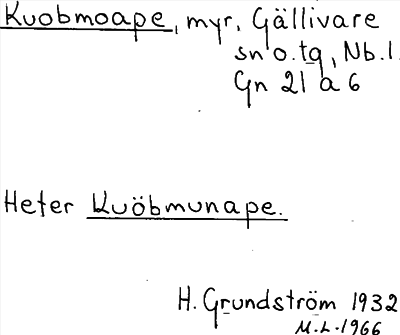 Kuobmoape, myr, Gällivare
sn o. tg, Nb. l.
Gn 21 a 6
Heter Kuöbmunape.
H. Grundström 1932
M.L. 1966